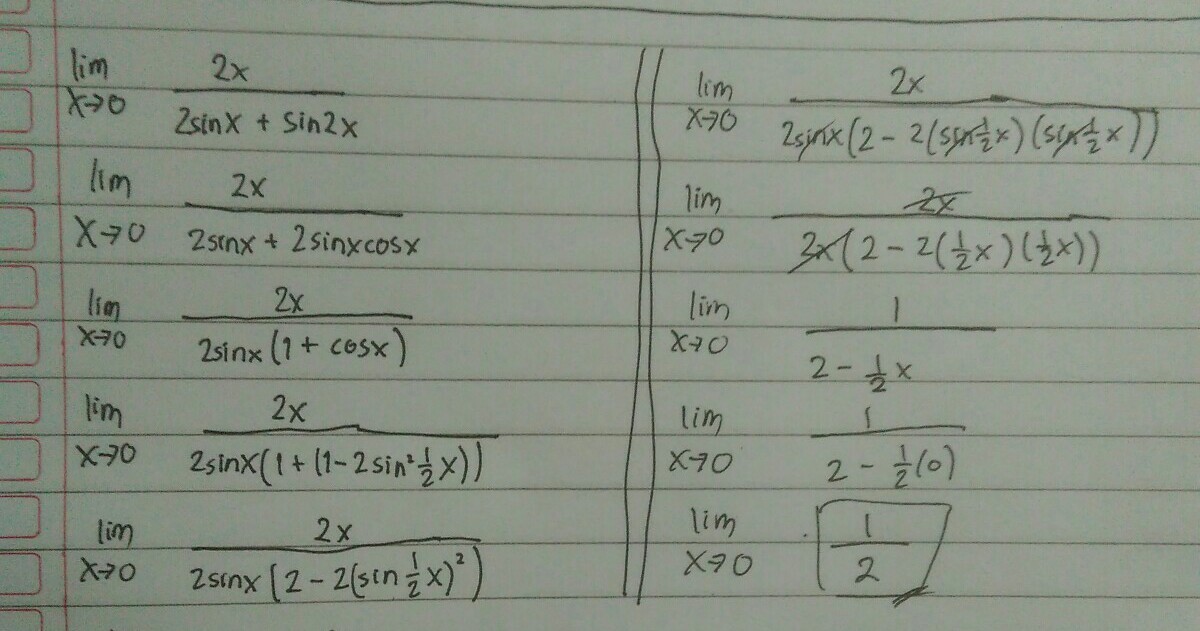 lim x→0 2x / (2sinx + sin2x)
lim x→0 2x / (2sinx + 2sinxcosx)
lim x→0 2x / (2sinx(1 + cosx))
lim x→0 2x / (2sinx(1 + (1-2sin²½x))
lim x→0 2x / (2sinx(2 - 2(sin ½x)²)
lim x→0 2x / (2sinx(2 - 2(sin½x)(sin½x)))
lim x→0 2x / (2x(2 - 2(½x)(½x)))
lim x→0 1 / (2 - ½x)
lim x→0 1 / (2 - ½(0))
lim x→0 1/2